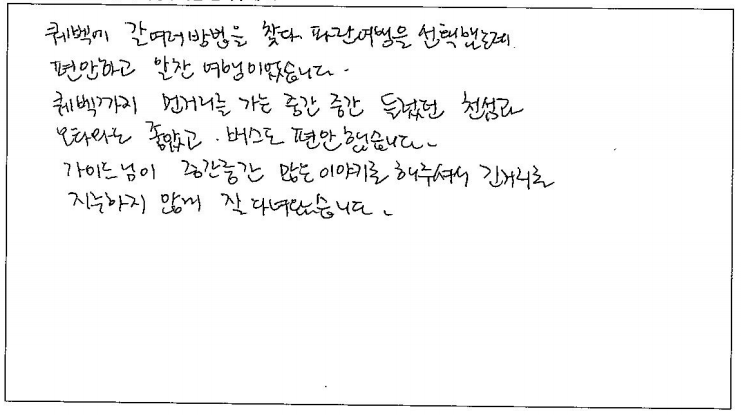 퀘벡에 갈여러방법을 찾다 파란여행을 선택했는데
편안하고 알찬 여행이였습니다.
퀘벡까지 먼거리를 가는 중간 중간 들렸던 천섬과
오타와는 좋았고. 버스도 편안했습니다.
가이드님이 중간중간 많은이야기를 해주셔서 긴거리를
지루하지 않게 잘 다녀왔습니다.